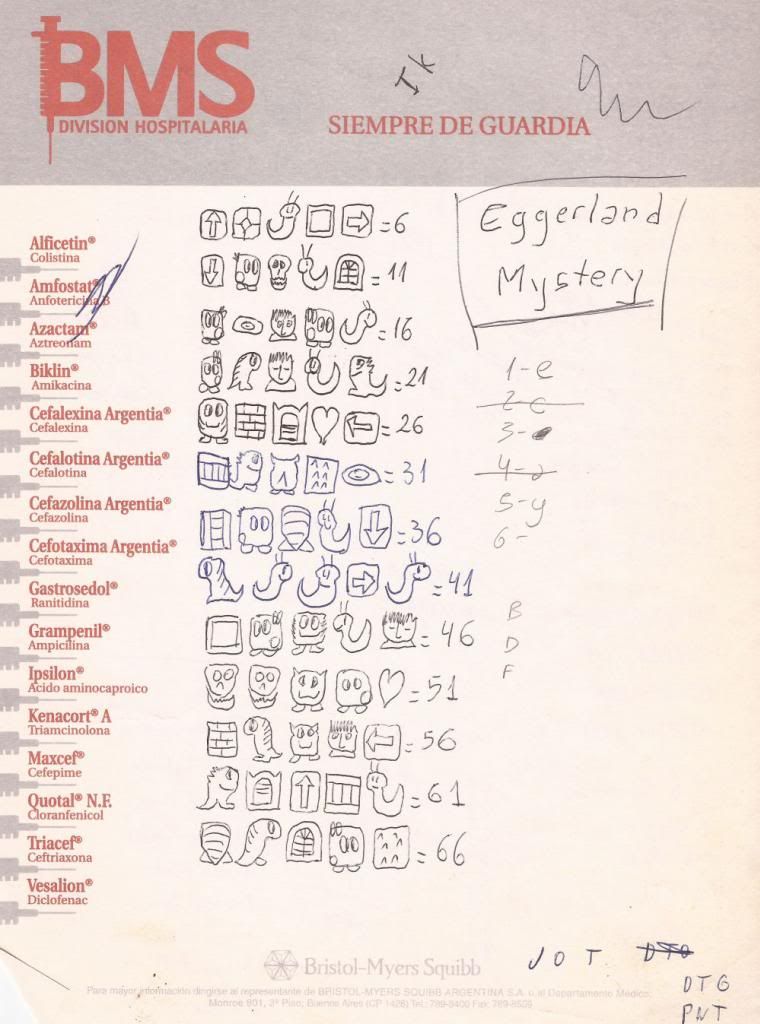 BMS
DIVISION HOSPITALARIA
SIEMPRE DE GUARDIA
IK
Eggerland
Mystery
Alficetin®
Colistina
Amfostat®
Anfotericina B
Azactam®
Aztreonam
Biklin®
Amikacina
Cefalexina Argentia®
Cefalexina
Cefalotina Argentia®
Cefalotina
Cefazolina Argentia®
Cefazolina
Cefotaxima Argentia®
Cefotaxima
Gastrosedol®
Ranitidina
Grampenil®
Ampicilina
Ipsilon®
Acido aminocaproico
Kenacort® A
Triamcinolona
Maxcef®
Cefepime
Quotal® N.F.
Cloranfenicol
Triacef®
Ceftriaxona
Vesalion®
Diclofenac
=6
=11
=16
=21
=26
=31
=36
=41
=46
=51
=56
=61
=66
1-e
2-e
3-
4-a
5-y
6-
B
D
F
JOT DTO
DTG
PNT
Bristol-Myers Squibb
Para mayor información dirigirse al representante de BRISTOL-MYERS SQUIBB ARGENTINA S.A. o al Departamento Médico:
Monroe 801, 3º Piso, Buenos Aires (CP 1428) Tel: 789-8400 Fax: 789-8509